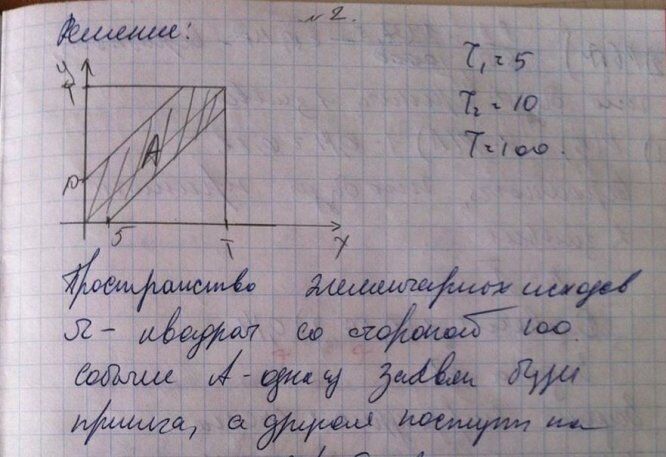 №2.
Решение:
τ₁ = 5
τ₂ = 10
T = 100.
y
T
10
A
5
T
x
Пространство элементарных исходов
Ω - квадрат со стороной 100.
событие A - одна из заявок будет
пришла, а другая поступит на